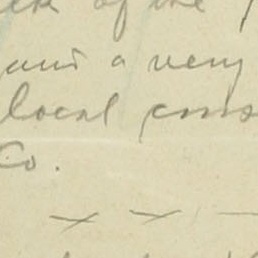 of the
and a very
local cons
Co.